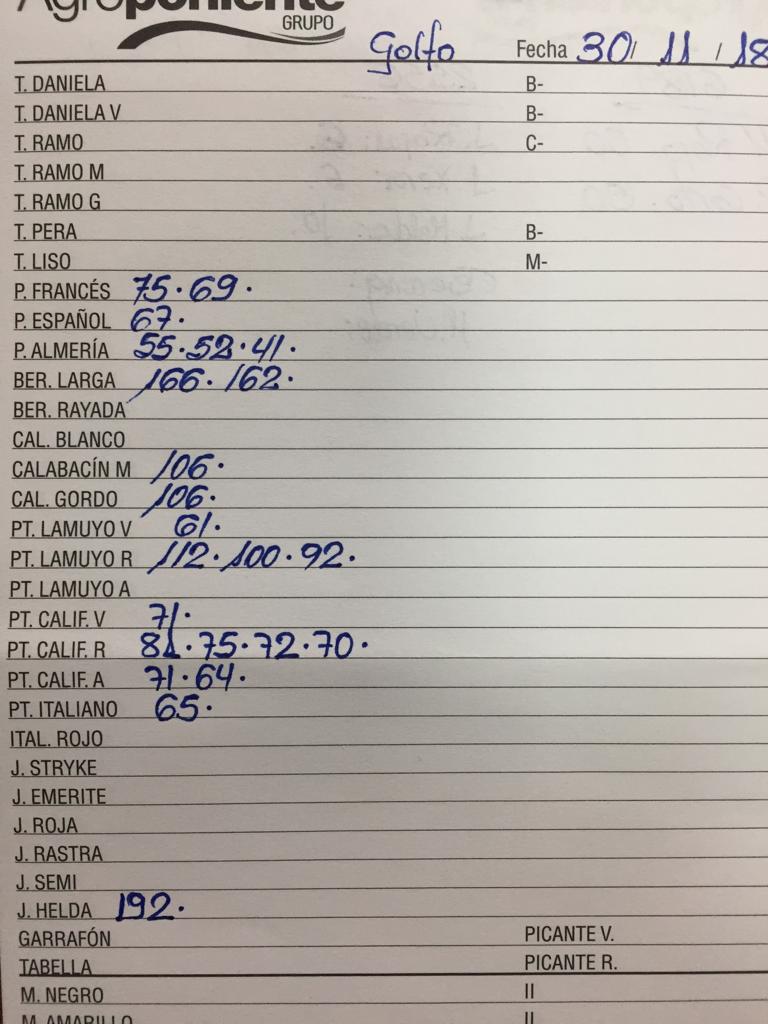 Agroponiente
GRUPO
Golfo Fecha 30/ 11 / 18
T. DANIELA B-
T. DANIELA V B-
T. RAMO C-
T. RAMO M
T. RAMO G
T. PERA B-
T. LISO M-
P. FRANCÉS 75. 69.
P. ESPAÑOL 67.
P. ALMERÍA 55. 52. 41.
BER. LARGA 166. 162.
BER. RAYADA
CAL. BLANCO
CALABACÍN M 106.
CAL. GORDO 106.
PT. LAMUYO V 61.
PT. LAMUYO R 112. 100. 92.
PT. LAMUYO A
PT. CALIF. V 71.
PT. CALIF. R 81. 75. 72. 70.
PT. CALIF. A 71. 64.
PT. ITALIANO 65.
ITAL. ROJO
J. STRYKE
J. EMERITE
J. ROJA
J. RASTRA
J. SEMI
J. HELDA 192.
GARRAFÓN PICANTE V.
TABELLA PICANTE R.
M. NEGRO II
M. AMARILLO II